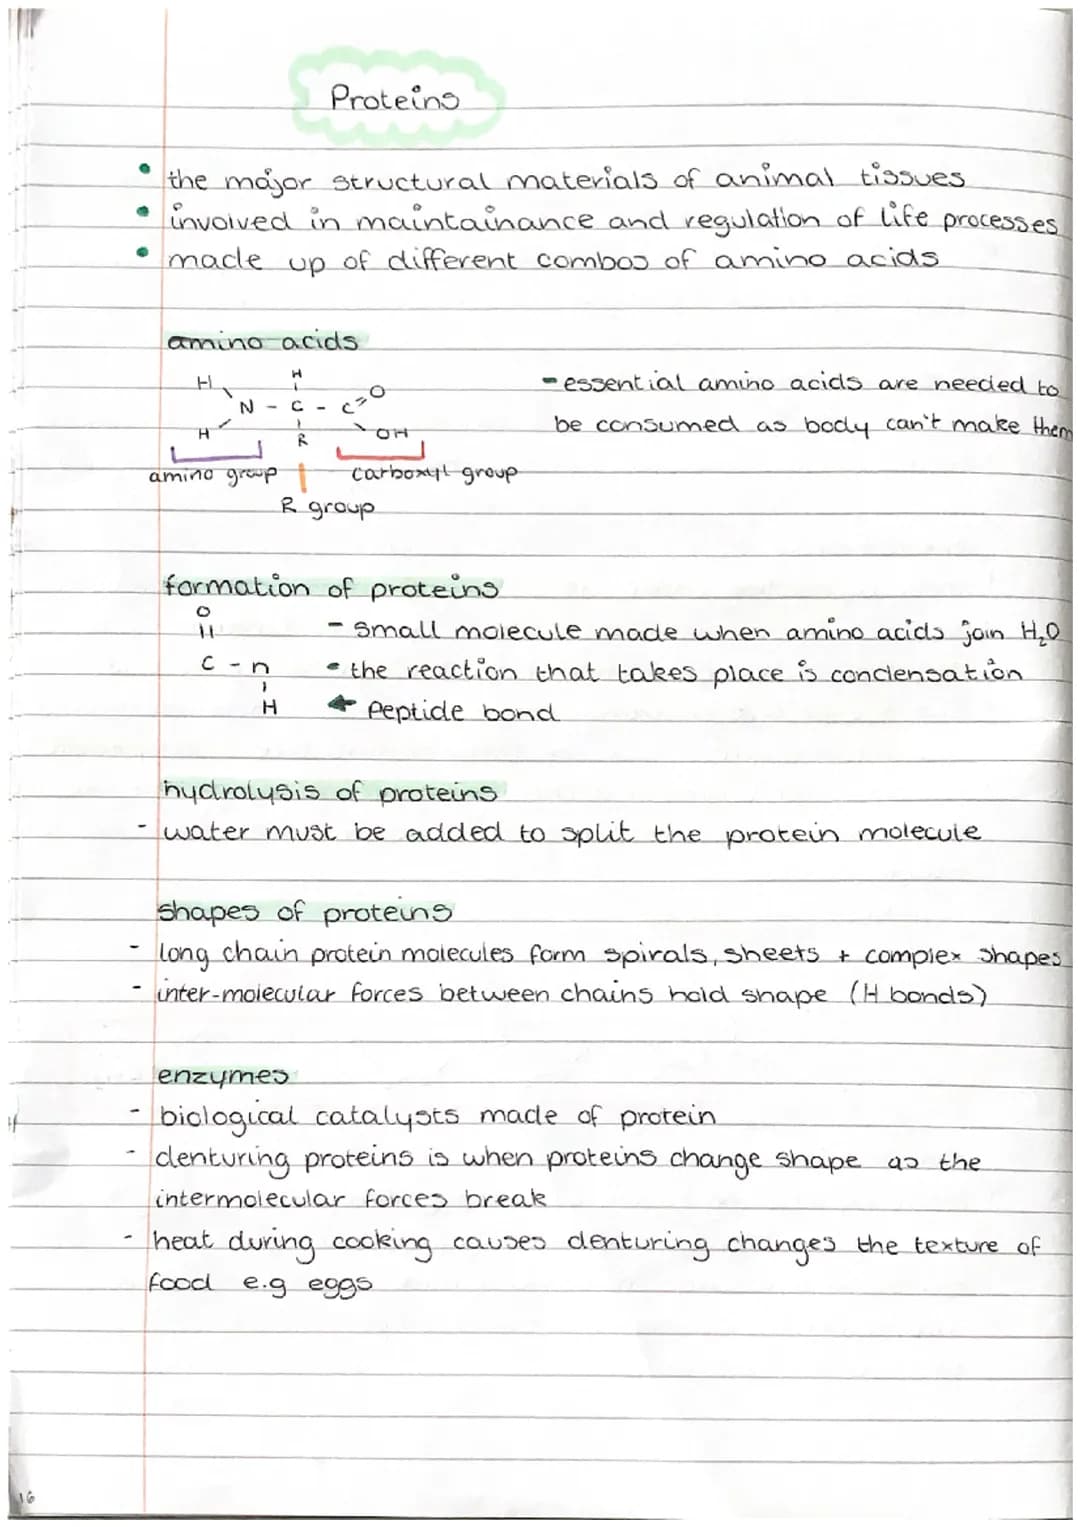 Proteins
• the major structural materials of animal tissues
• involved in maintainance and regulation of life processes
• made up of different combos of amino acids
amino acids
H H O
N - C - C
H R OH
amino group carboxyl group
R group
- essential amino acids are needed to
be consumed as body can't make them
formation of proteins
O
C - n
H
- small molecule made when amino acids join H₂O
• the reaction that takes place is condensation
← Peptide bond
hydrolysis of proteins
- water must be added to split the protein molecule
shapes of proteins
- long chain protein molecules form spirals, sheets + complex shapes
- inter-molecular forces between chains hold shape (H bonds)
enzymes
- biological catalysts made of protein
- denturing proteins is when proteins change shape as the
intermolecular forces break
- heat during cooking causes denturing changes the texture of
food e.g eggs
16